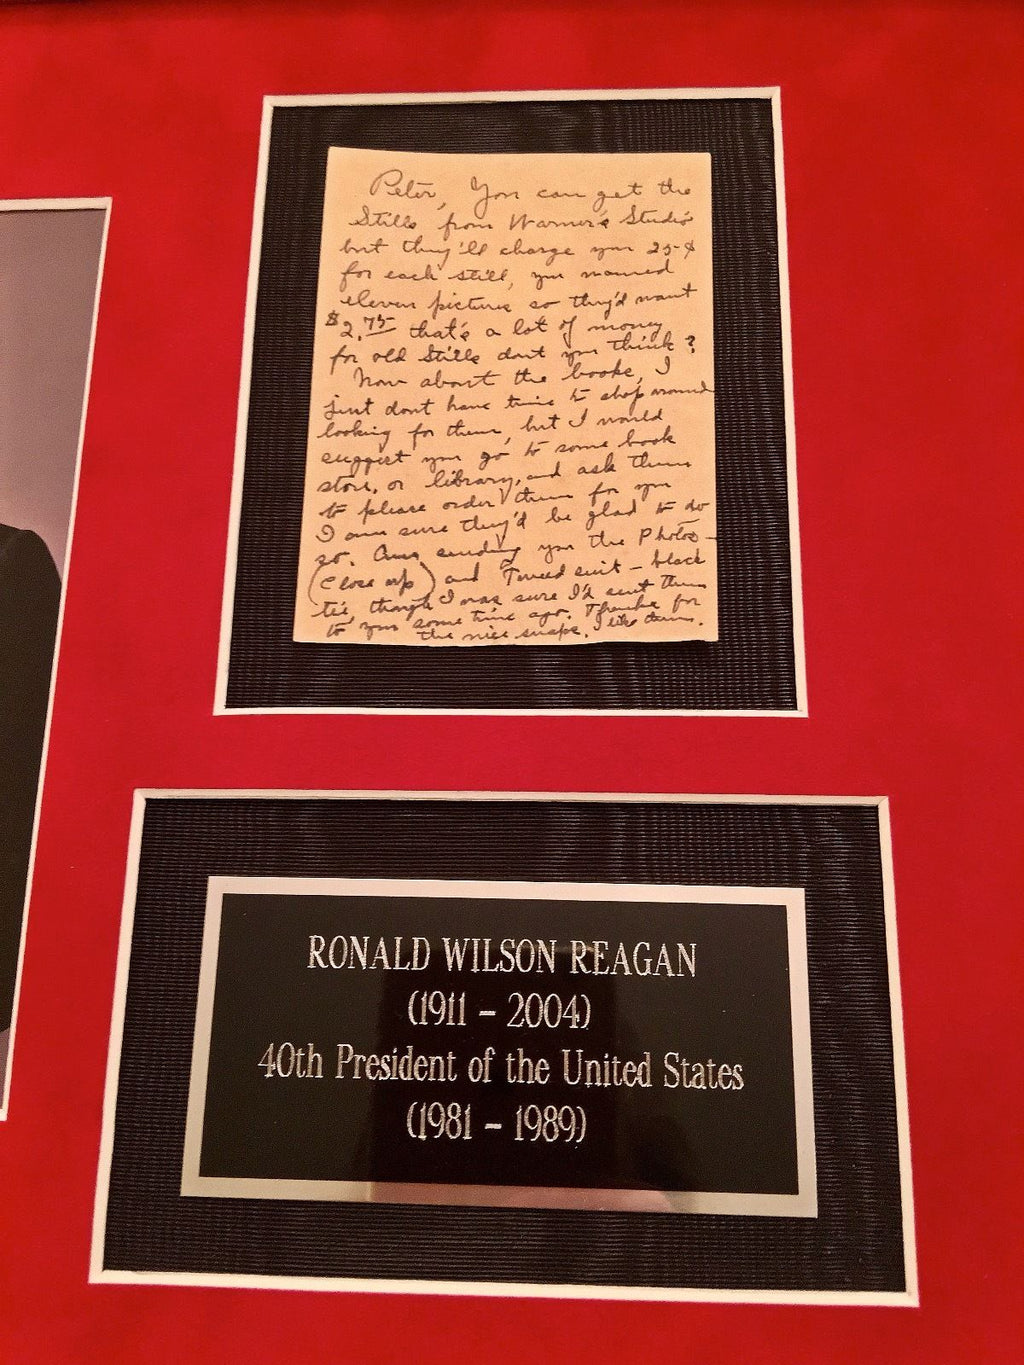 Peter, You can get the
Stills from Warner's Studio
but they'll charge you 25¢
for each still, you named
eleven pictures so they'd want
$2.75 that's a lot of money
for old Stills dont you think?
Now about the books, I
just dont have time to shop around
looking for them, but I would
suggest you go to some book
store, or library, and ask them
to please order them for you
I am sure they'd be glad to do
so. Am sending you the Photos -
(close up) and Tweed suit - black
tie, though I was sure I'd sent them
to you some time ago. Thanks for
the nice snaps. I like them.
RONALD WILSON REAGAN
(1911 - 2004)
40th President of the United States
(1981 - 1989)